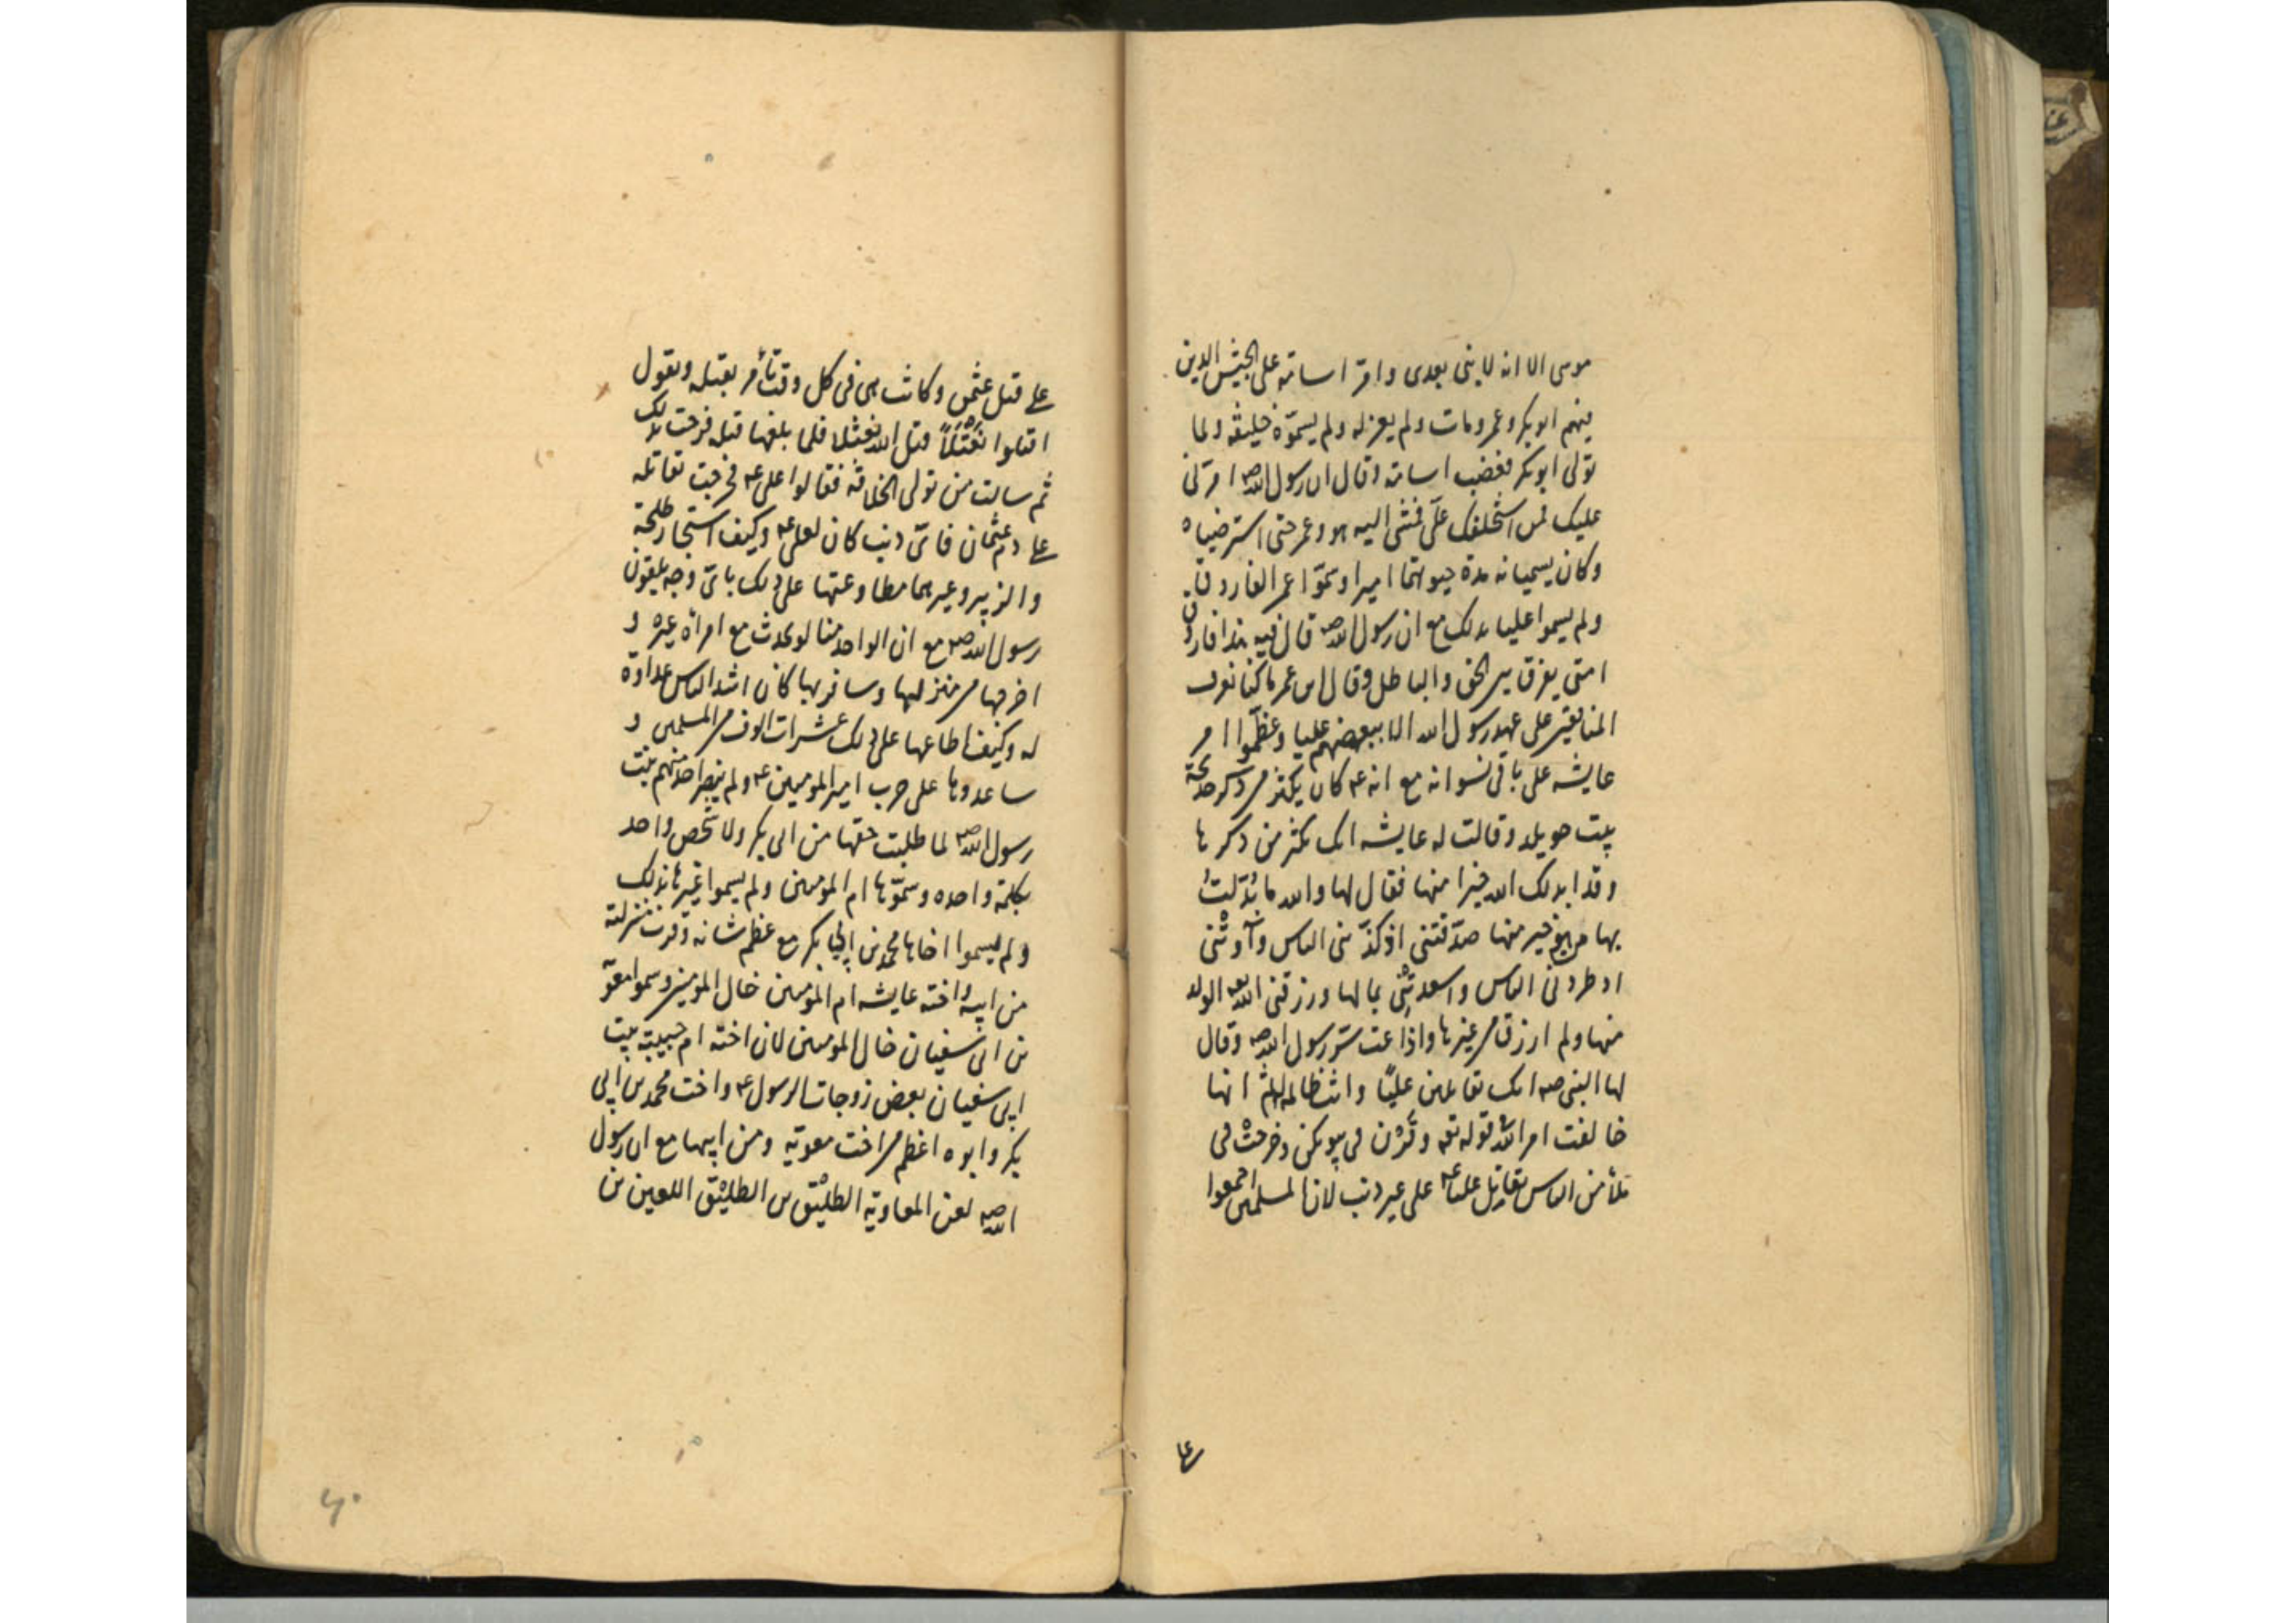 موسى الا انه لا نبى بعدى وامر اسامة على الجيش الدين
فيهم ابو بكر وعمر ومات ولم يعزله ولم يسموّه خليفة ولما
تولى ابو بكر فغضب اسامة وقال ان رسول الله صه امرنى
عليك فمن استخلفك علىّ فمشى اليه هو وعمر حتى استرضياه
وكان يسميانه مدة حيوتهما اميرا وسمّوا عمر الفاروق
ولم يسموا عليا بذلك مع ان رسول الله صه قال فيه هذا فاروق
امتى يفرق بين الحق والباطل وقال ابن عمر ما كنا نعرف
المنافقين على عهد رسول الله الا ببغضهم عليا وعظّموا امر
عايشه على باقى نسوانه مع انه عم كان يكثر من ذكر خديجة
بنت خويلد وقالت له عايشه انك تكثر من ذكرها
وقد ابدلك الله خيرا منها فقال لها والله ما بُدّلتُ
بها من هو خير منها صدّقتنى اذ كذّبنى الناس وآوتْنى
اذ طردنى الناس واسعدتنى بمالها ورزقنى الله الولد
منها ولم ارزق من غيرها واذاعت سرّ رسول الله صه وقال
لها النبى صه انك تقاتلين عليّا وانت ظالمة له ثم انها
خالفت امر الله قوله تع وقَرْن فى بيوتكن وخرجتْ فى
ملأ من الناس تقاتل عليا عم على غير ذنب لان المسلمين اجمعوا
علے
علے قتل عثمن وكانت هى فى كل وقت تأمر بقتله وتقول
اقتلوا نعْثلاً قتل الله نعثلا فلما بلغها قتله فرحت بذلك
ثم سالت من تولى الخلافة فقالوا على عم فخرجت تقاتله
علے دم عثمان فاىّ ذنب كان لعلى عم وكيف استجاز طلحة
والزبير وغيرهما مطاوعتها على ذلك باىّ وجه يلقون
رسول الله صه مع ان الواحد منا لو تحدث مع امرأة غيره و
اخرجها من منزلها وسافر بها كان اشد الناس عداوة
له وكيف اطاعها على ذلك عشرات الوف من المسلمين و
ساعدوها على حرب امير المومنين عم ولم ينصر احد منهم بنت
رسول الله صه لما طلبت حقها من ابى بكر ولا شخص واحد
بكلمة واحده وسمّوها ام المومنين ولم يسموا غيرها بذلك
ولم يسموا اخاها محمد بن ابى بكر مع عظم شانه وقرب منزلته
من ابيه واخته عايشه ام المومنين خال المومنين وسموا معوية
بن ابى سفيان خال المومنين لان اخته ام حبيبة بنت
ابى سفيان بعض زوجات الرسول عم واخت محمد بن ابى
بكر وابوه اعظم من اخت معوية ومن ابيها مع ان رسول
الله صه لعن المعاوية الطليْق بن الطليْق اللعين بن